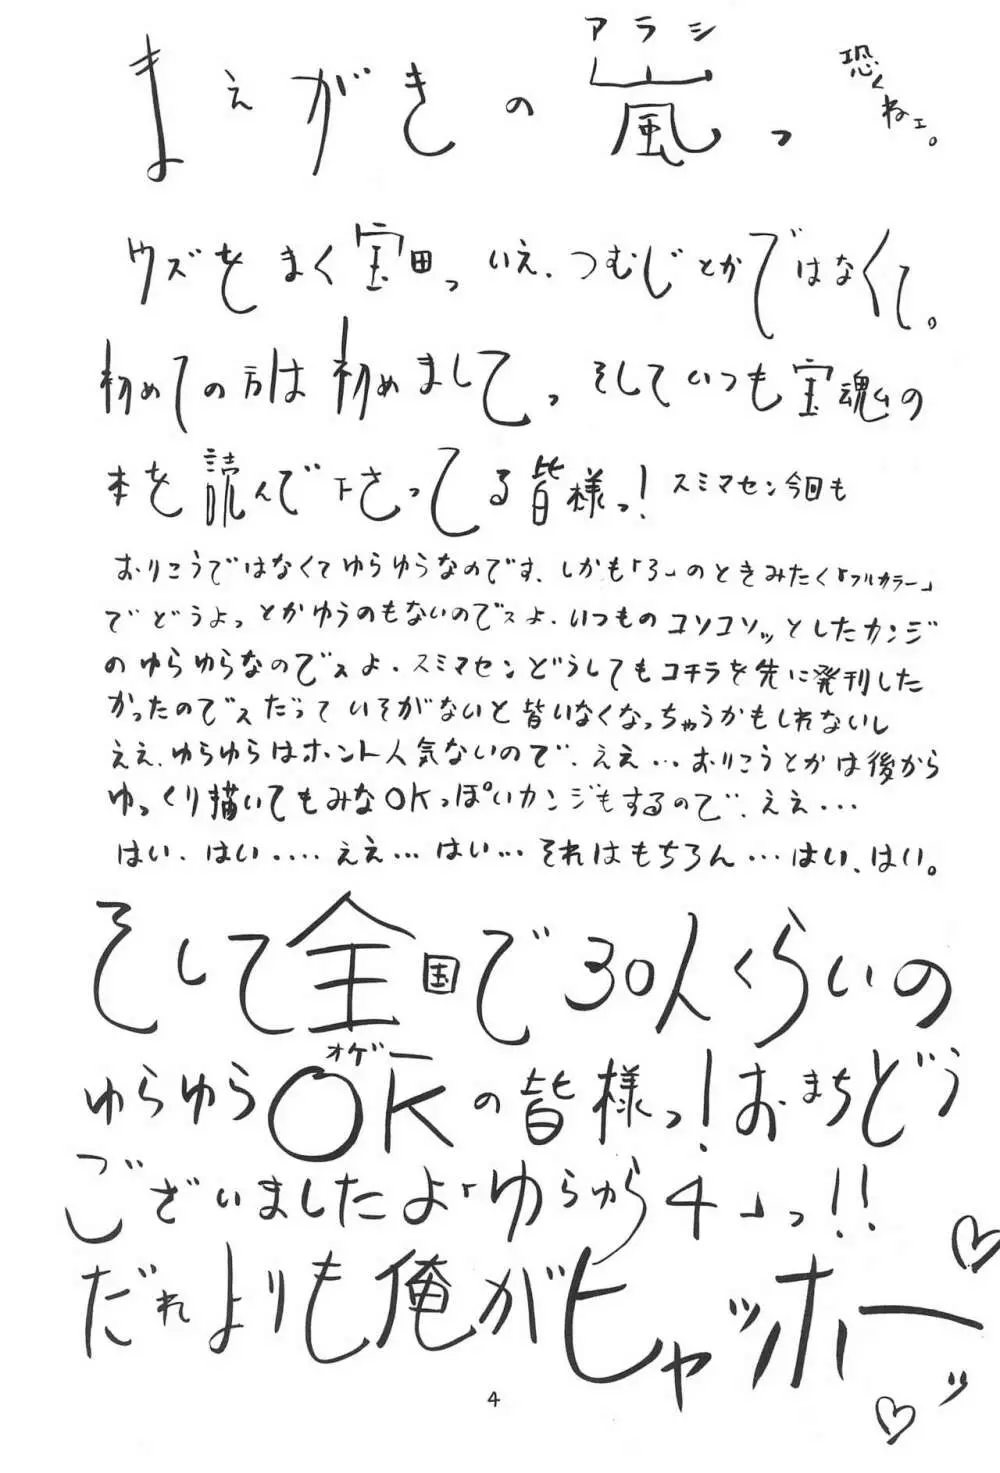 まえがきの嵐っ
アラシ
恐くねェ。
ウズをまく宝田っ いえ、つむじとかではなくて。
初めての方は初めまして、そしていつも宝魂ムの
本を読んで下さってる皆様っ!スミマセン今回も
おりこうではなくてゆらゆらなのです、しかも「3」のときみたく「フルカラー」
でどうよっとかゆうのもないのでスよ、いつものコソコソッとしたカンジ
のゆらゆらなのでスよ、スミマセンどうしてもコチラを先に発刊した
かったのでスだっていそがないと皆いなくなっちゃうかもしれないし
ええ、ゆらゆらはホント人気ないので、ええ…おりこうとかは後から
ゆっくり描いてもみなOKっぽいカンジもするので、ええ…
はい、はい‥‥ええ…はい…それはもちろん…はい、はい。
そして全国で30人くらいの
オゲー
ゆらゆらOKの皆様っ!おまちどう
ございましたよ「ゆらゆら4」っ!!
だれよりも俺がヒャッホーッ
4